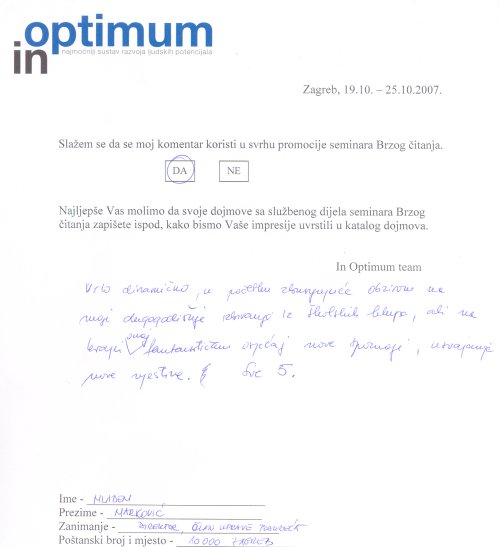 in optimum
najmoćniji sustav razvoja ljudskih potencijala
Zagreb, 19.10. – 25.10.2007.
Slažem se da se moj komentar koristi u svrhu promocije seminara Brzog čitanja.
DA NE
Najljepše Vas molimo da svoje dojmove sa službenog dijela seminara Brzog
čitanja zapišete ispod, kako bismo Vaše impresije uvrstili u katalog dojmova.
In Optimum team
Vrlo dinamično, u početku zbunjujuće obzirom na
moje dugogodišnje iz školskih klupa, ali na
kraju onaj fantastičan osjećaj nove spoznaje, usvajanja
nove vještine. Sve 5.
Ime - MLADEN
Prezime - MARKOVIĆ
Zanimanje - DIREKTOR, ČLAN UPRAVE
Poštanski broj i mjesto - 10000 ZAGREB